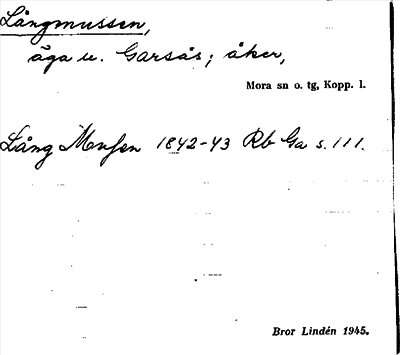 Långmussen,
äga u. Garsås; åker,
Mora sn o. tg, Kopp. l.
Lång Mussen 1842-43 Rb Ga s. 111.
Bror Lindén 1945.